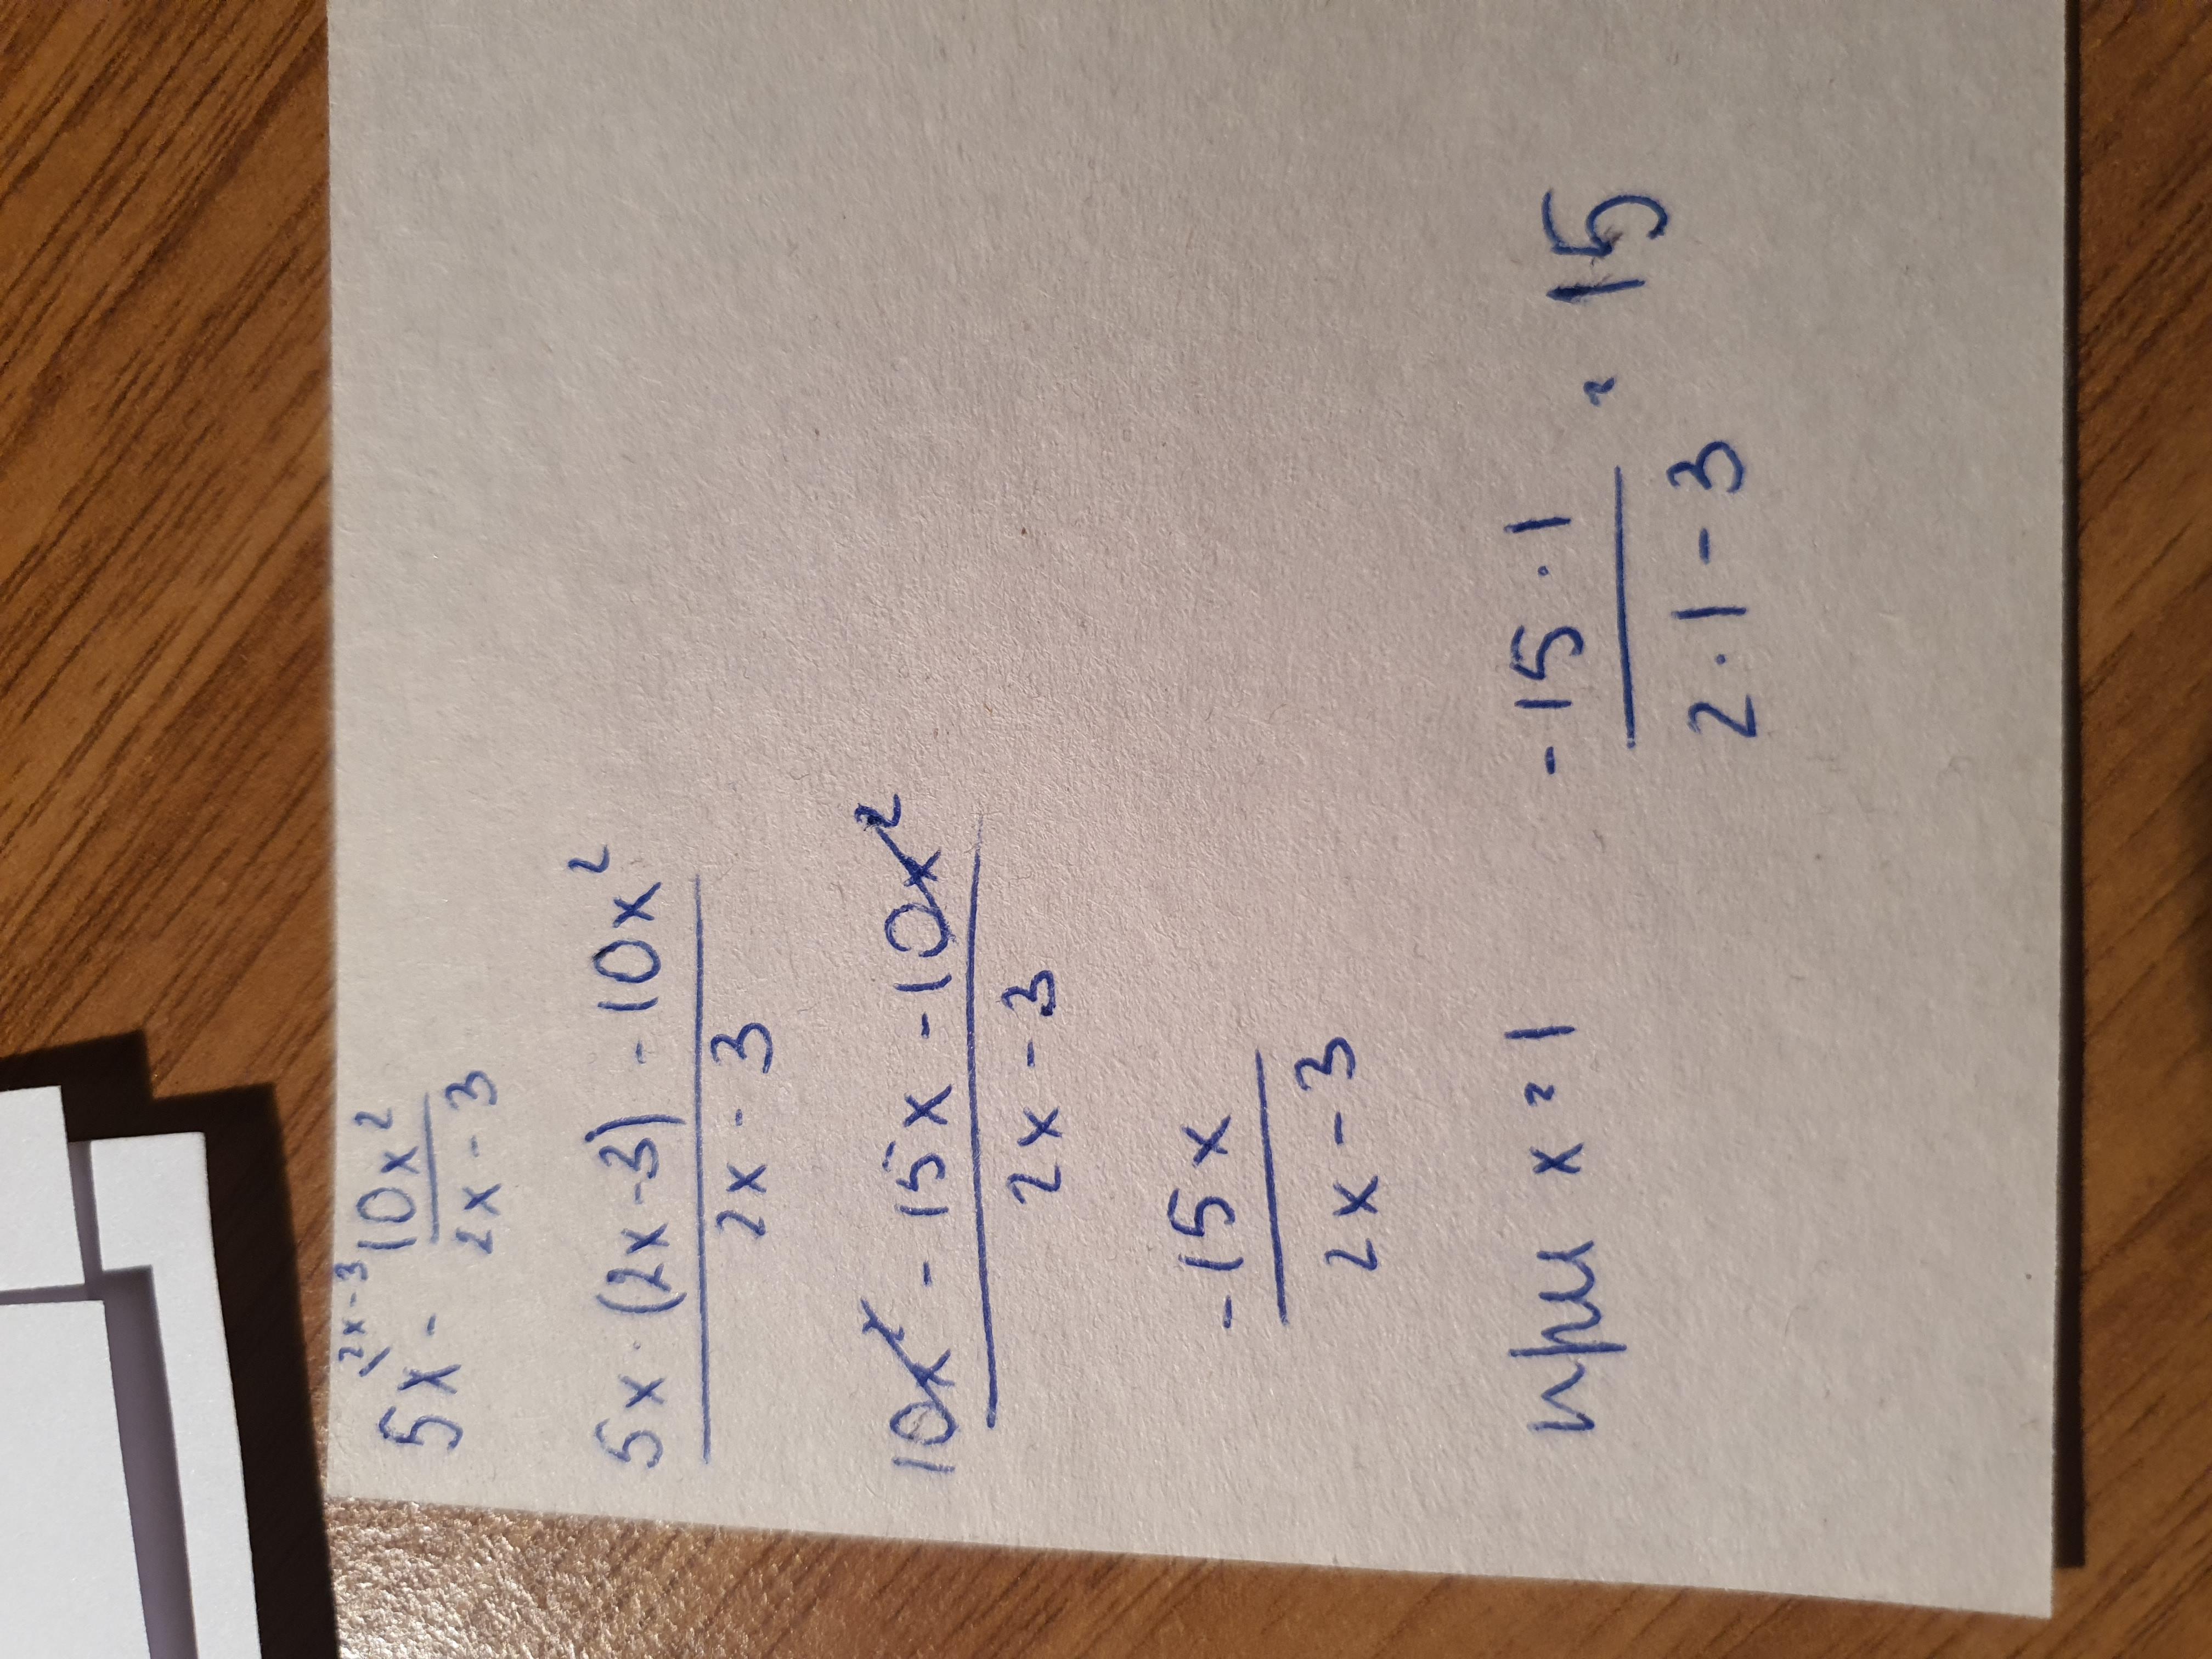 5x^{\2x-3} - \frac{10x^2}{2x-3}
\frac{5x \cdot (2x-3) - 10x^2}{2x-3}
\frac{10x^2 - 15x - 10x^2}{2x-3}
\frac{-15x}{2x-3}
при x = 1 \frac{-15 \cdot 1}{2 \cdot 1 - 3} = 15